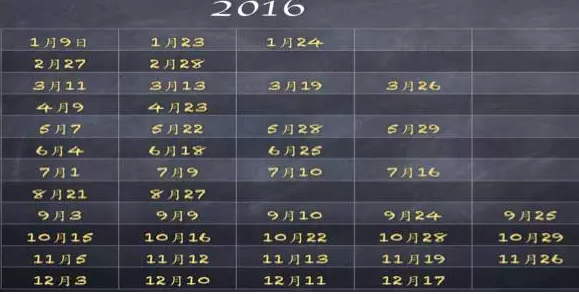 2016
1月9日 1月23 1月24
2月27 2月28
3月11 3月13 3月19 3月26
4月9 4月23
5月7 5月22 5月28 5月29
6月4 6月18 6月25
7月1 7月9 7月10 7月16
8月21 8月27
9月3 9月9 9月10 9月24 9月25
10月15 10月16 10月22 10月28 10月29
11月5 11月12 11月13 11月19 11月26
12月3 12月10 12月11 12月17